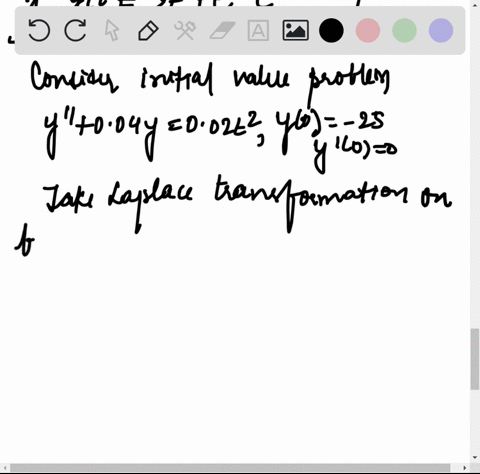 Consider initial value problem
y"+0.04y=0.02t², y(0)=-25
y'(0)=0
Take Laplace transformation on
b